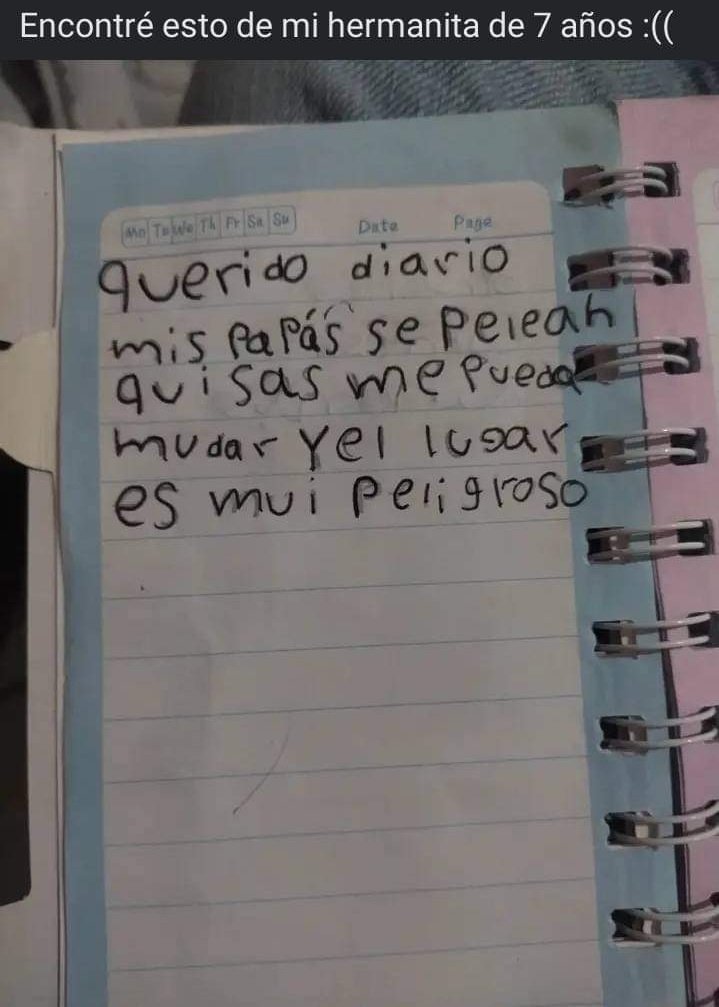 Encontré esto de mi hermanita de 7 años :((
Mo Tu We Th Fr Sa Su Date Page
querido diario
mis papás se peleah
quisas me pueda
mudar y el lugar
es mui peligroso